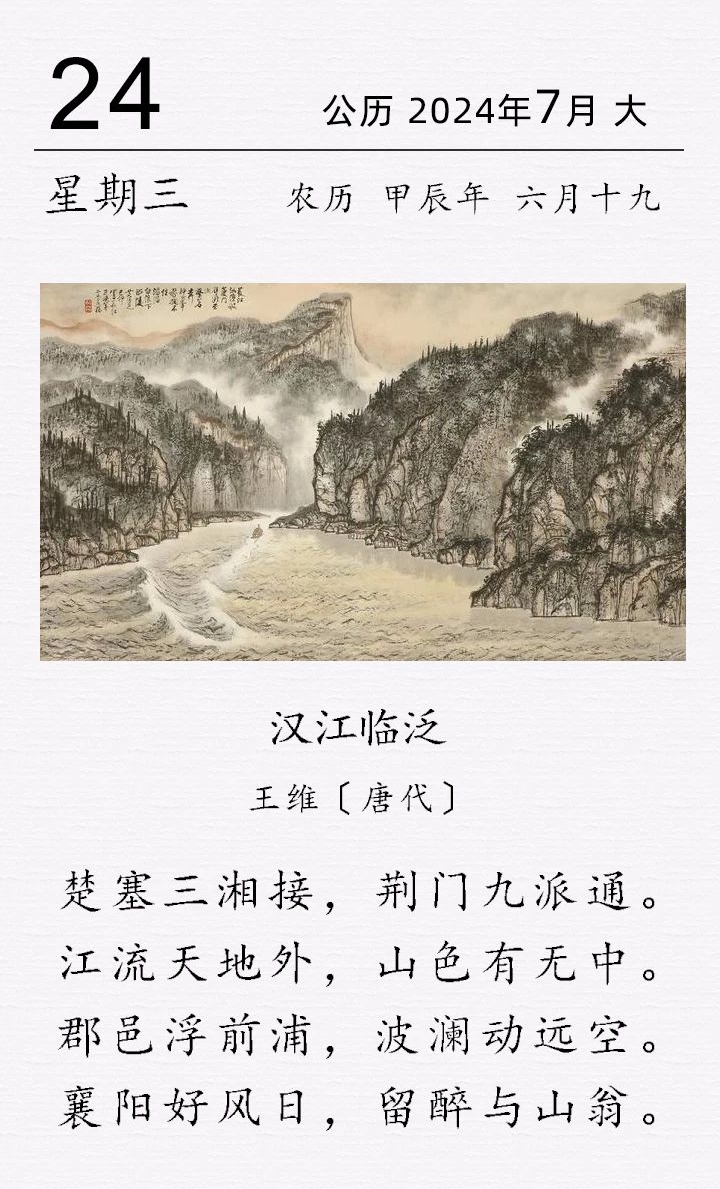 24
公历 2024年7月 大
星期三
农历 甲辰年 六月十九
汉江临泛
王维〔唐代〕
楚塞三湘接，荆门九派通。
江流天地外，山色有无中。
郡邑浮前浦，波澜动远空。
襄阳好风日，留醉与山翁。